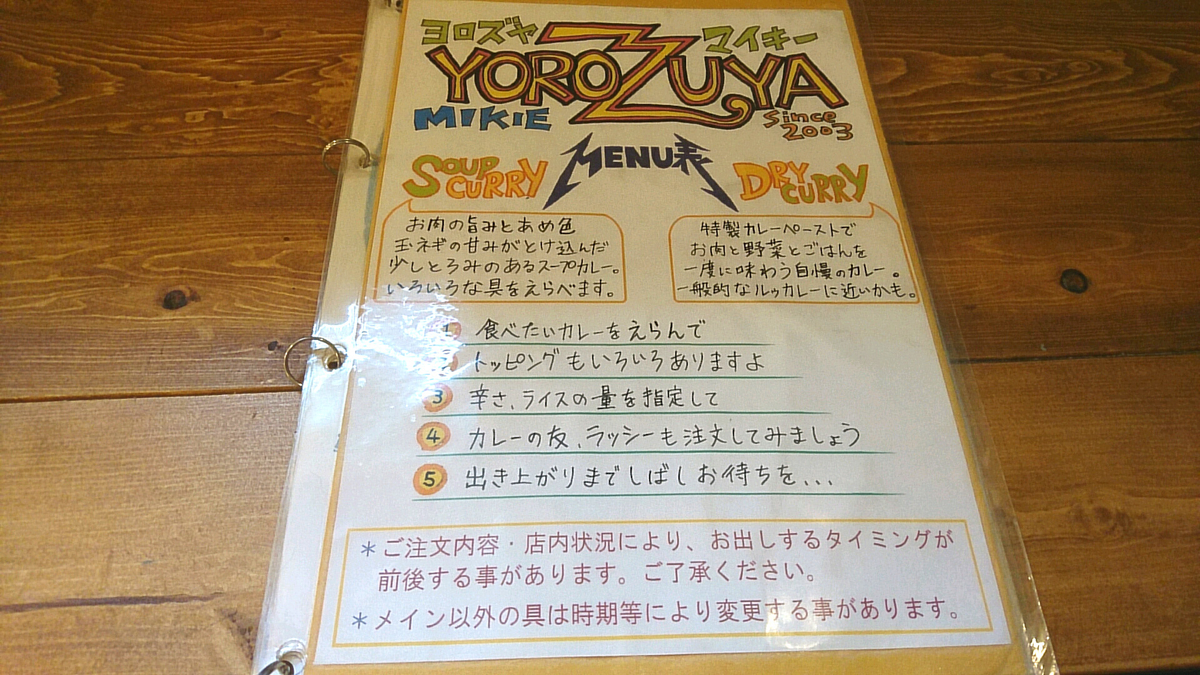 ヨロズヤ マイキー
YOROZUYA
MIKIE since 2003
SOUP CURRY MENU表 DRY CURRY
お肉の旨みとあめ色
玉ネギの甘みがとけ込んだ
少しとろみのあるスープカレー。
いろいろな具をえらべます。
特製カレーペーストで
お肉と野菜とごはんを
一度に味わう自慢のカレー。
一般的なルゥカレーに近いかも。
1 食べたいカレーをえらんで
トッピングもいろいろありますよ
3 辛さ、ライスの量を指定して
4 カレーの友、ラッシーも注文してみましょう
5 出き上がりまでしばしお待ちを...
＊ご注文内容・店内状況により、お出しするタイミングが
前後する事があります。ご了承ください。
＊メイン以外の具は時期等により変更する事があります。